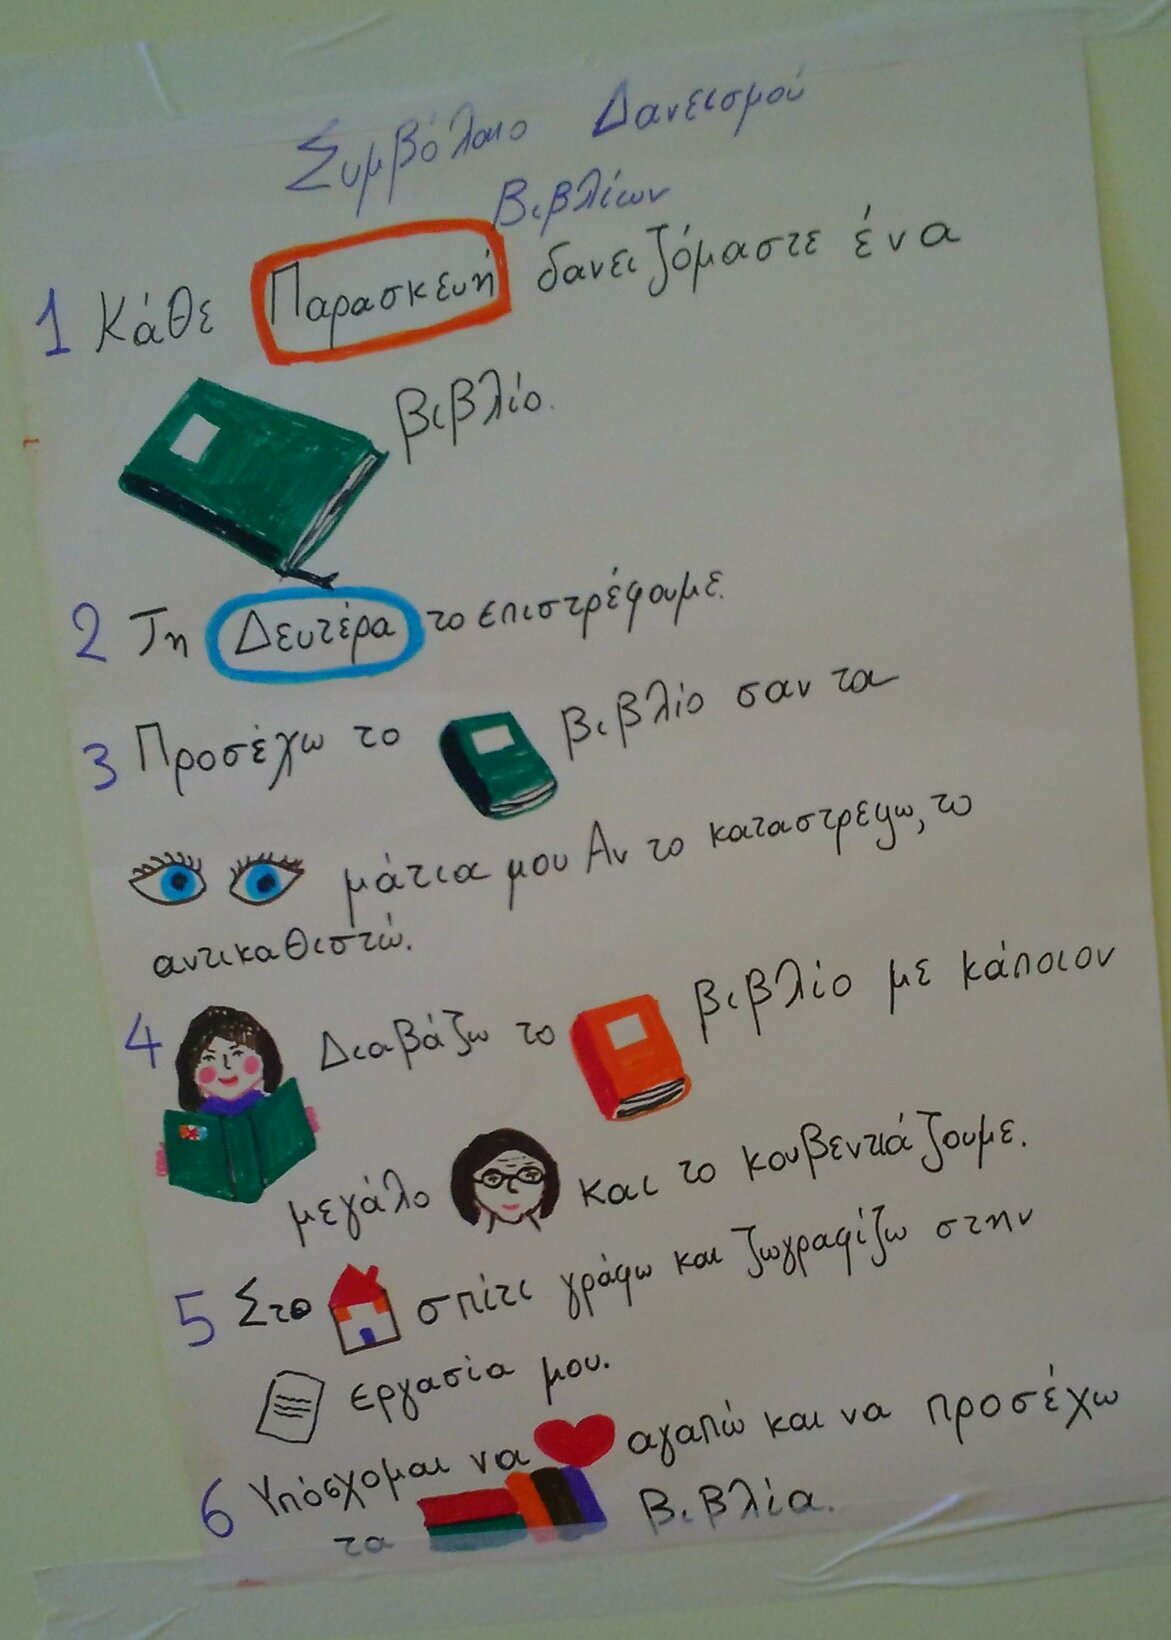 Συμβόλαιο Δανεισμού
Βιβλίων
1 Κάθε Παρασκευή δανειζόμαστε ένα
βιβλίο.
2 Τη Δευτέρα το επιστρέφουμε.
3 Προσέχω το βιβλίο σαν τα
μάτια μου Αν το καταστρεψω, το
αντικαθιστώ.
4 Διαβάζω το βιβλίο με κάποιον
μεγάλο και το κουβεντιάζουμε.
5 Στο σπίτι γράφω και ζωγραφίζω στην
εργασία μου.
6 Υπόσχομαι να αγαπώ και να προσέχω
τα βιβλία.